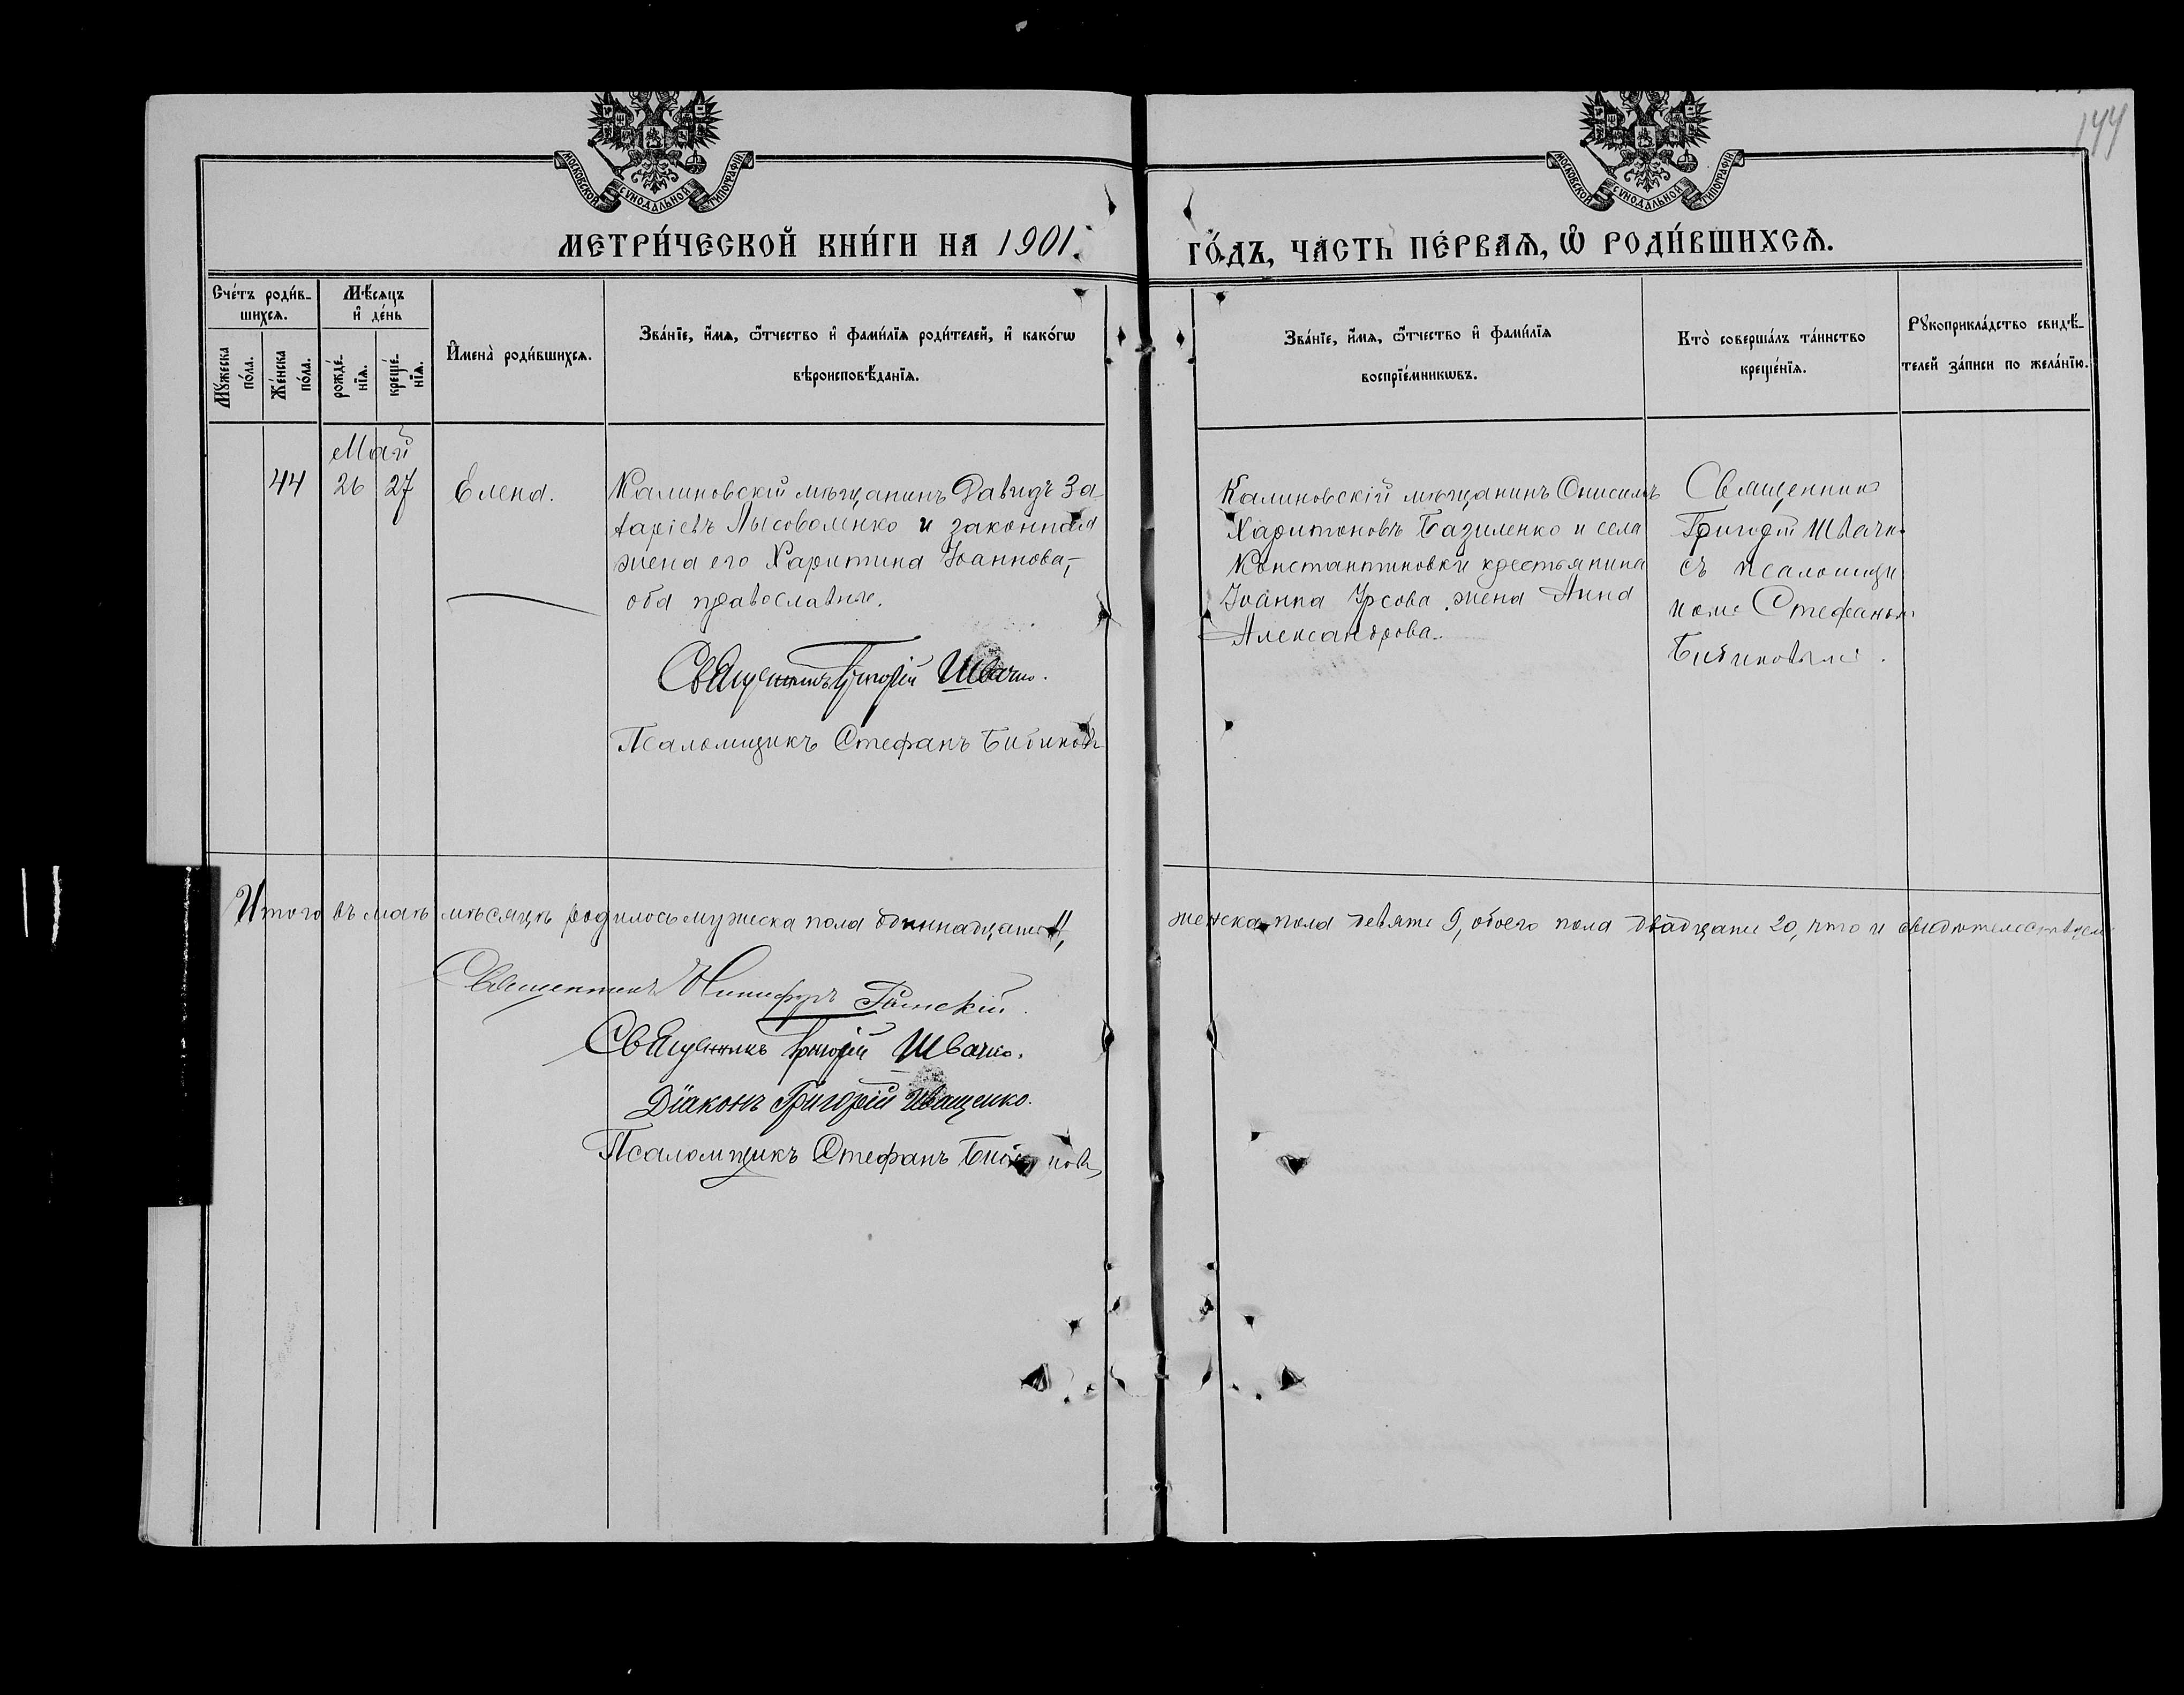 144
МОСКОВСКОЙ СѴНОДАЛЬНОЙ ТИПОГРАФІИ
МОСКОВСКОЙ СѴНОДАЛЬНОЙ ТИПОГРАФІИ
МЕТРИ́ЧЕСКОЙ КНИ́ГИ НА 1901.
ГО́ДЪ, ЧА́СТЬ ПЕ́РВАѦ, Ѡ҆ РОДИ́ВШИХСѦ.
Сче́тъ роди́в-
шихсѧ.
Мꙋ́жеска
по́ла.
Же́нска
по́ла.
Мѣ́сѧцъ
и҆ де́нь
рожде́-
нїѧ.
креще́-
нїѧ.
И҆мена̀ роди́вшихсѧ.
Зва́нїе, и҆́мѧ, ѻ҆́тчество и҆ фами́лїѧ роди́телей, и҆ како́гѡ
вѣроисповѣ́данїѧ.
Зва́нїе, и҆́мѧ, ѻ҆́тчество и҆ фами́лїѧ
воспрїе́мникѡвъ.
Кто̀ соверша́лъ та́инство
креще́нїѧ.
Рꙋкоприкла́дство свидѣ́-
телей за́писи по жела́нїю.
Май
44 26 27 Елена.
Калиновскій мѣщанинъ Давидъ За-
харіевъ Лысоволенко и законная
жена его Харитина Іоаннова,-
оба православные.
Священникъ Григорій Швачко.
Псаломщикъ Стефанъ Бибиковъ
Калиновскій мѣщанинъ Онисимъ
Харитоновъ Базиленко и села
Константиновки крестьянина
Іоанна Урсова жена Анна
Александрова.
Священникъ
Григорій Швачко
съ псаломщи
комъ Стефаномъ
Бибиковымъ.
Итого въ маѣ мѣсяцѣ родилось мужеска пола одиннадцать 11,
женска пола девять 9, обоего пола двадцать 20, что и свидѣтельствуемъ
Священникъ Никифоръ
Священникъ Григорій Швачко.
Діаконъ Григорій Иващенко.
Псаломщикъ Стефанъ Бибиковъ